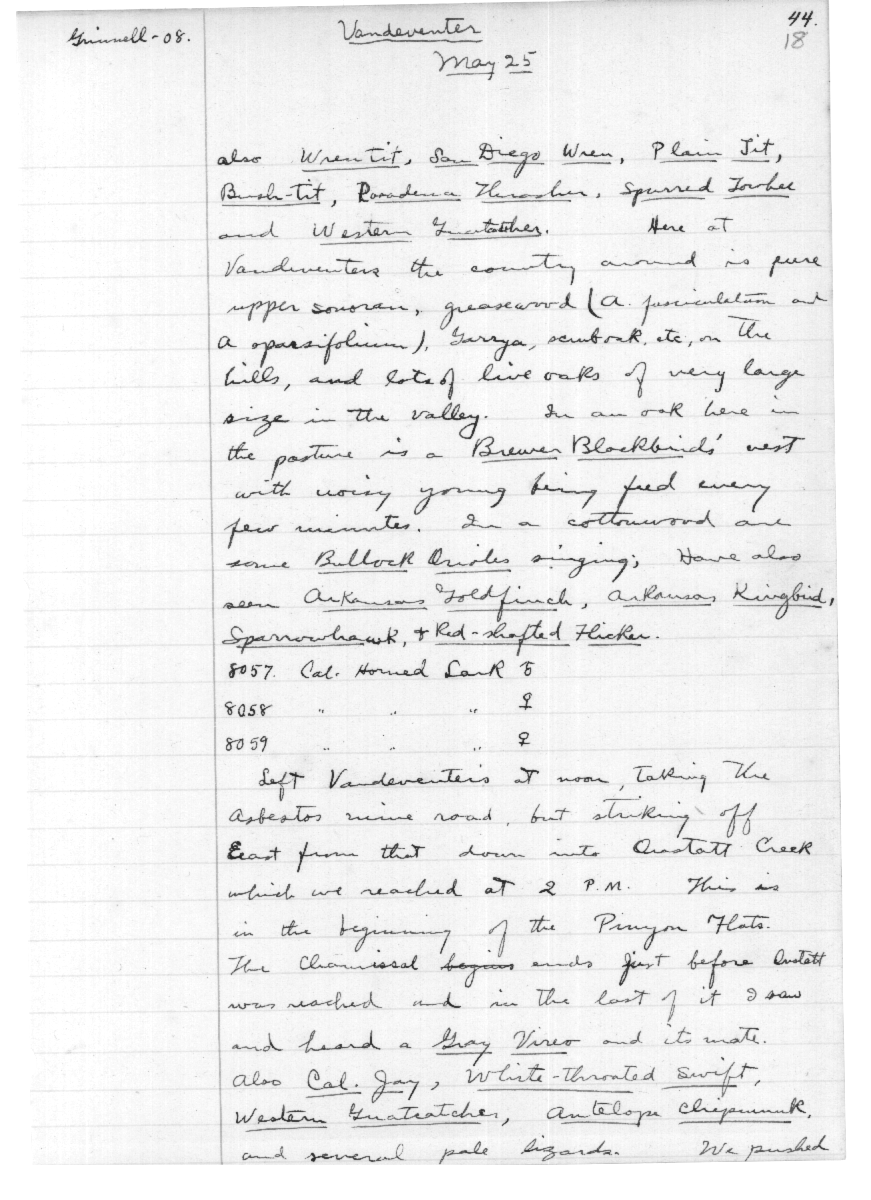 Grinnell-08.
Vandeventer
44.
18
May 25
also Wren tit, San Diego Wren, Plain Tit,
Bush-tit, Pasadena Thrasher, Spurred Towhee
and Western Gnatcatcher. Here at
Vandeventers the country around is pure
upper sonoran, greasewood (A. fasciculatum and
A sparsifolium), Garrya, scruboak, etc, on the
hills, and lots of live oaks of very large
size in the valley. In an oak here in
the pasture is a Brewer Blackbirds' nest
with noisy young being fed every
few minutes. In a cottonwood are
some Bullock Orioles singing; Have also
seen Arkansas Goldfinch, Arkansas Kingbird,
Sparrowhawk, + Red-shafted Flicker.
8057. Cal. Horned Lark ♁
8058 " " " ♀
8059 " " " ♀
Left Vandeventers at noon, taking the
Asbestos mine road, but striking off
East from that down into Onstatt Creek
which we reached at 2 P.M. This is
in the beginning of the Pinyon Flats.
The Chamissal begins ends just before Onstatt
was reached and in the last of it I saw
and heard a Gray Vireo and its mate.
Also Cal. Jay, White-throated Swift,
Western Gnatcatcher, Antelope Chipmunk,
and several pale lizards. We pushed